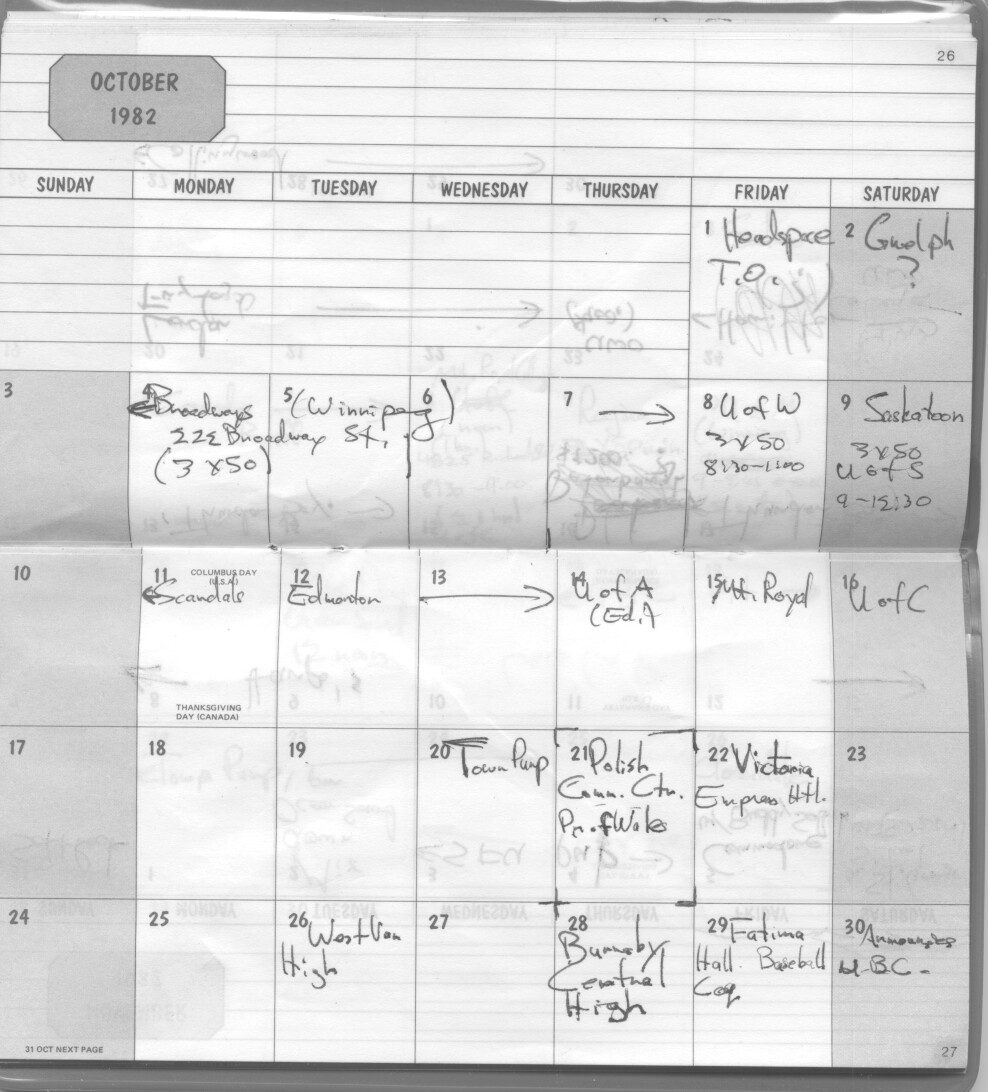 26
OCTOBER
1982
SUNDAY MONDAY TUESDAY WEDNESDAY THURSDAY FRIDAY SATURDAY
1 Headspace
T.O.
2 Guelph
?
3
4 Broadways
222 Broadway St.,
(3 x 50)
5 (Winnipeg)
6
7
8 U of W
3 x 50
8:30-1:00
9 Saskatoon
3 x 50
U of S
9-12:30
10
11 COLUMBUS DAY
(U.S.A.)
Scandals
THANKSGIVING
DAY (CANADA)
12
Edmonton
13
14
U of A
(Ed.)
15 Mt. Royal
16
U of C
17
18
19
20 Town Pump
21 Polish
Comm. Ctr.
Pr. of Wales
22 Victoria
Empress Htl.
23
24
25
26 West Van
High
27
28
Burnaby
Central
High
29 Fatima
Hall. Baseball
Cap
30
U.B.C.
31 OCT NEXT PAGE
27